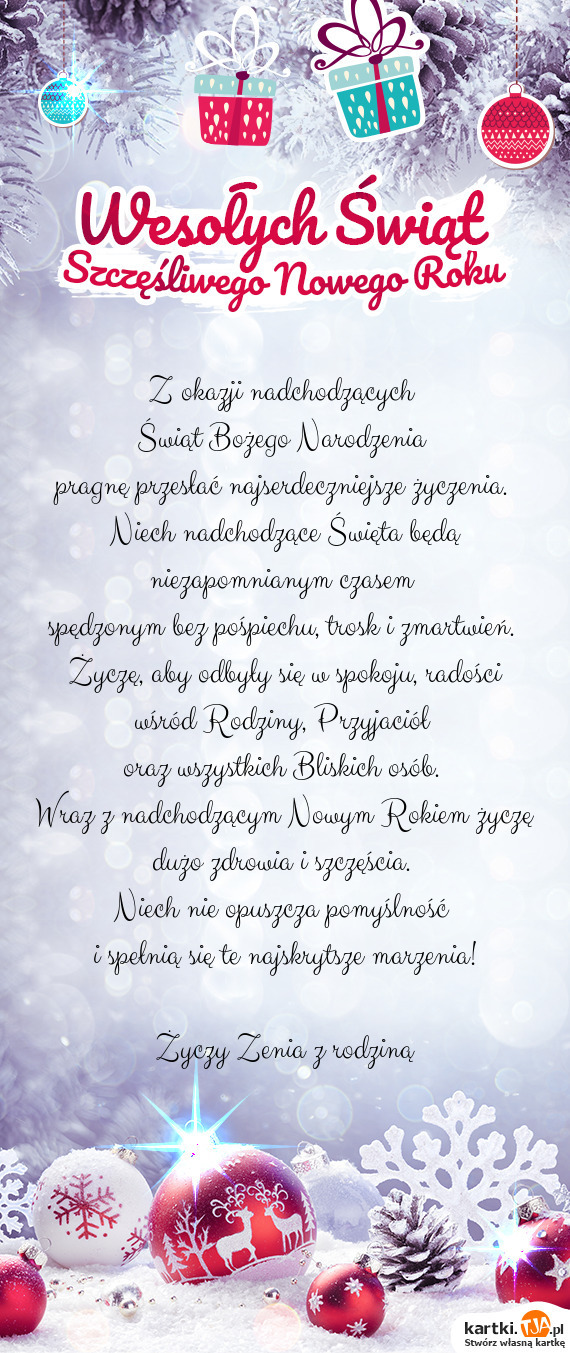 Wesołych Świąt
Szczęśliwego Nowego Roku
Z okazji nadchodzących
Świąt Bożego Narodzenia
pragnę przesłać najserdeczniejsze życzenia.
Niech nadchodzące Święta będą
niezapomnianym czasem
spędzonym bez pośpiechu, trosk i zmartwień.
Życzę, aby odbyły się w spokoju, radości
wśród Rodziny, Przyjaciół
oraz wszystkich Bliskich osób.
Wraz z nadchodzącym Nowym Rokiem życzę
dużo zdrowia i szczęścia.
Niech nie opuszcza pomyślność
i spełnią się te najskrytsze marzenia!
Życzy Zenia z rodziną
kartki.TJA.pl
Stwórz własną kartkę